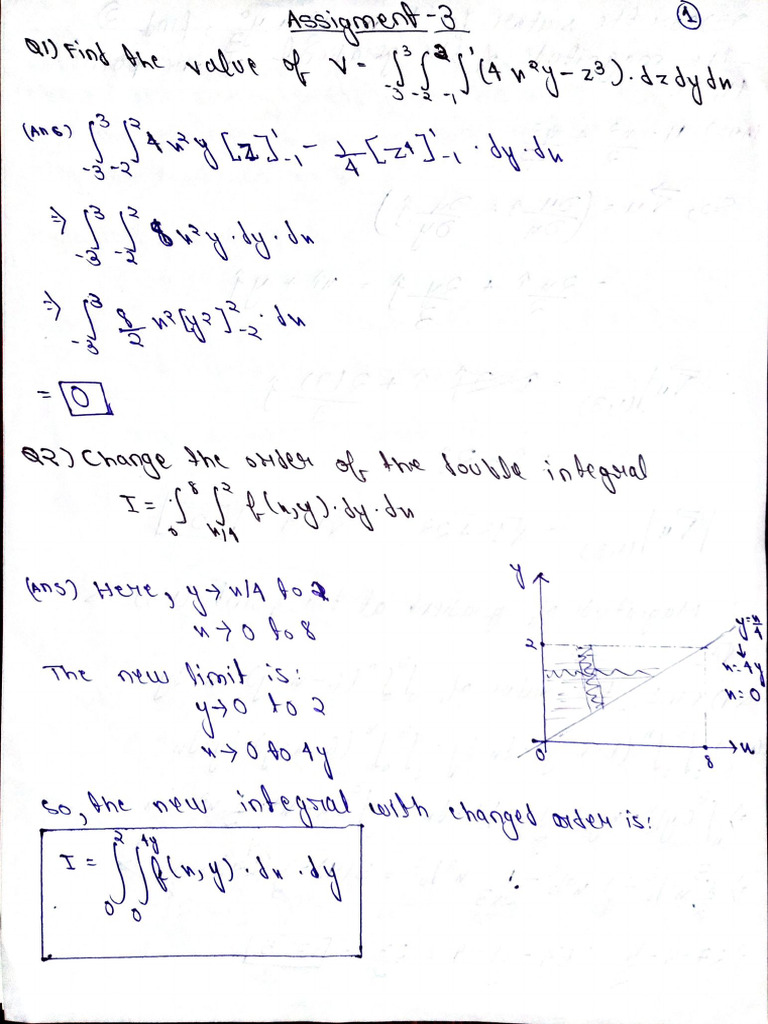 Assigment-3
①
Q1) Find the value of V = ∫₋₃³ ∫₋₂² ∫₋₁¹ (4x²y − z³) · dz dy dx.
(Ans) ∫₋₃³ ∫₋₂² 4x²y [z]¹₋₁ − 1/4 [z⁴]¹₋₁ · dy · dx
⇒ ∫₋₃³ ∫₋₂² 8x²y · dy · dx
⇒ ∫₋₃³ 8/2 x² [y²]²₋₂ · dx
= 0
Q2) Change the order of the double integral
I = ∫₀⁸ ∫ₓ/₄² f(x,y) · dy · dx
(Ans) Here, y → x/4 to 2
x → 0 to 8
The new limit is:
y → 0 to 2
x → 0 to 4y
y
2
0
8
x
y = x/4
↓
x = 4y
x = 0
so, the new integral with changed order is:
I = ∫₀² ∫₀⁴ʸ f(x,y) · dx · dy